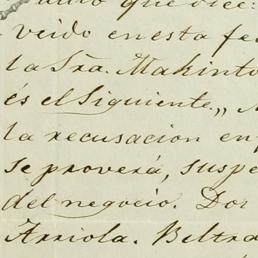 auto que dice:
veido en esta fe
la Sra. Makinto
és el siguiente,, M
la recusacion en
se proverá, suspe
del negocio. Dor
Arriola. Beltra